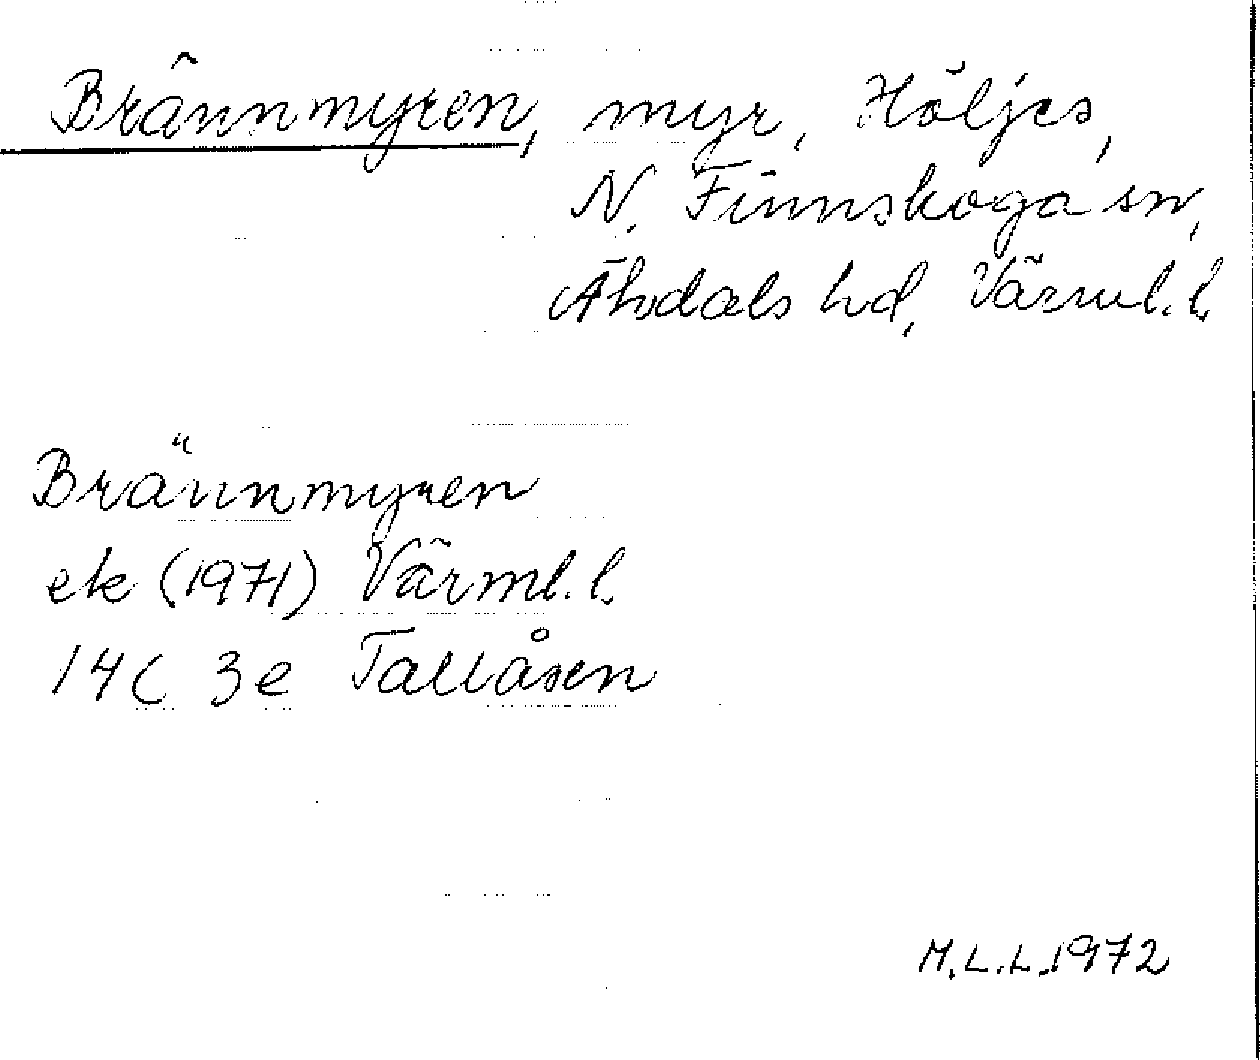 Brännmyren, myr, Höljes,
N. Finnskoga sn,
Älvdals hd, Värml. l.
Brännmyren
ek (1971) Värml. l.
14C 3e Tallåsen
M.L.L. 1972